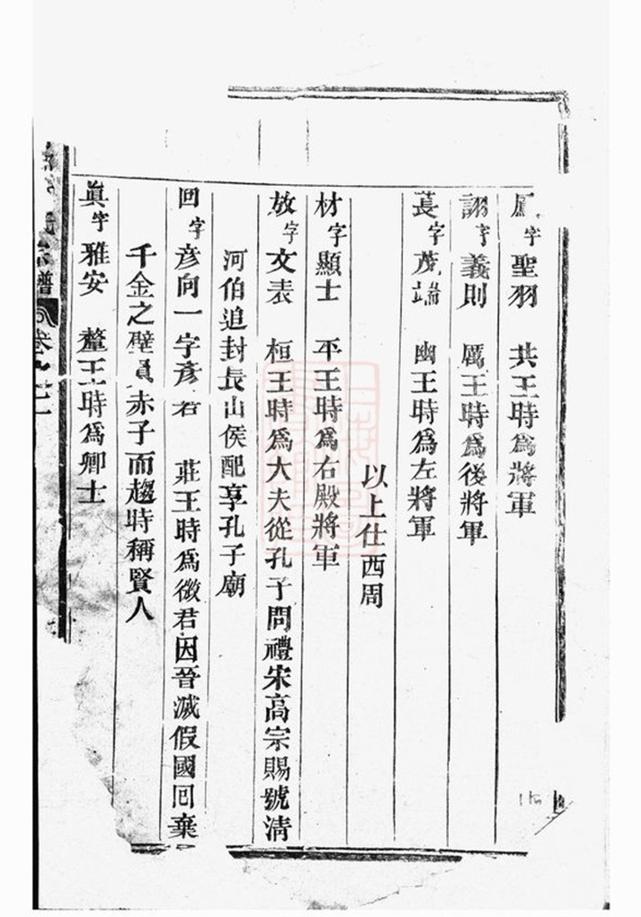 字聖羽 共王時爲將軍
詡字義則 厲王時爲後將軍
萇字茂端 幽王時爲左將軍
以上仕西周
材字顯士 平王時爲右殿將軍
放字文表 桓王時爲大夫從孔子問禮宋高宗賜號清
河伯追封長山侯配享孔子廟
回字彥向一字彥若 莊王時爲徵君因晉滅假國回棄
千金之璧負赤子而趨時稱賢人
眞字雅安 釐王時爲卿士
宗譜 卷